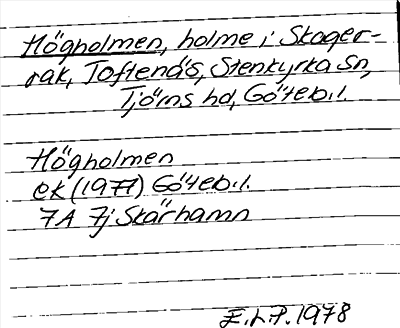 Högholmen, holme i Skager-
rak, Toftenäs, Stenkyrka Sn,
Tjörns hd, Göteb.l.
Högholmen
ek (1977) Göteb.l.
7A 7j Skärhamn
E.L.P. 1978